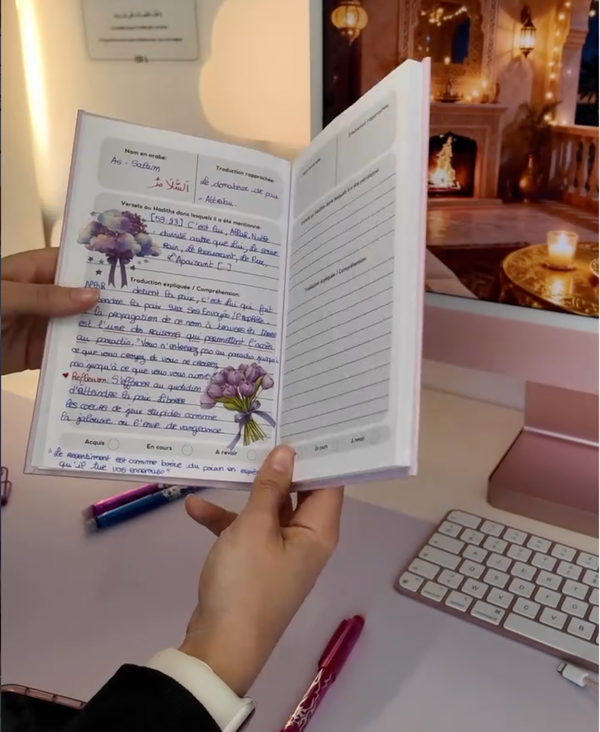 Nom en arabe:
As-Salām
السَّلَامُ
Traduction rapprochée
Le donateur de paix
Versets ou Hadiths dans lesquels il a été mentionné
[59:23] C'est Lui, Allah. Nulle
divinité autre que Lui, Le Souve
rain, le Pur,
L'Apaisant [..]
Traduction expliquée / Compréhension:
Allah détient la paix, c'est Lui qui fait
descendre la paix sur Ses Envoyés / Prophètes.
la propagation de ce nom à travers la Terre
est l'une des raisons qui permettent l'accès
au paradis. "Vous n'entrerez pas au paradis jusqu'à
ce que vous croyez et vous ne croirez
pas jusqu'à ce que vous vous aimiez
♥ Réflexion: S'efforcer au quotidien
d'atteindre la paix. Libérer
les coeurs de
la jalousie ou l'envie de vengeance
Acquis
En cours
A revoir
"Le ressentiment est comme boire du poison en
qu'il tue vos ennemis"
Traduction rapprochée
Traduction expliquée / Compréhension:
En cours
A revoir